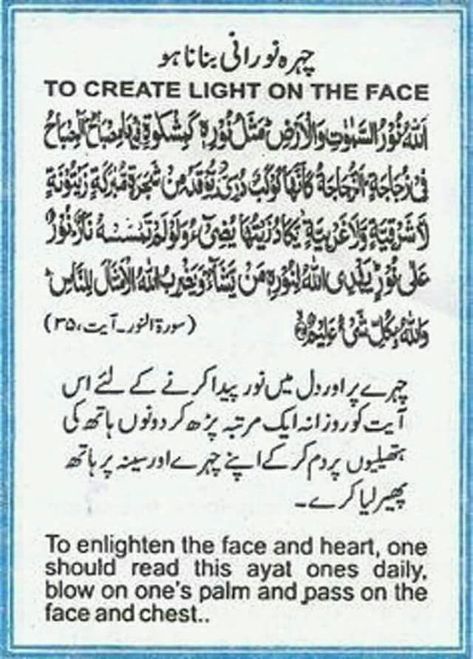 چہرہ نورانی بنانا ہو
TO CREATE LIGHT ON THE FACE
اَللهُ نُوْرُ السَّمٰوٰتِ وَالْاَرْضِ مَثَلُ نُوْرِهٖ كَمِشْكٰوةٍ فِيْهَا مِصْبَاحٌ اَلْمِصْبَاحُ
فِيْ زُجَاجَةٍ اَلزُّجَاجَةُ كَاَنَّهَا كَوْكَبٌ دُرِّيٌّ يُّوْقَدُ مِنْ شَجَرَةٍ مُّبٰرَكَةٍ زَيْتُوْنَةٍ
لَّا شَرْقِيَّةٍ وَّلَا غَرْبِيَّةٍ يَّكَادُ زَيْتُهَا يُضِيْٓءُ وَلَوْ لَمْ تَمْسَسْهُ نَارٌ نُوْرٌ
عَلٰى نُوْرٍ يَهْدِى اللهُ لِنُوْرِهٖ مَنْ يَّشَآءُ وَيَضْرِبُ اللهُ الْاَمْثَالَ لِلنَّاسِ
وَاللهُ بِكُلِّ شَيْءٍ عَلِيْمٌ (سورۃ النور۔ آیت، ۳۵)
چہرے پر اور دل میں نور پیدا کرنے کے لئے اس
آیت کو روزانہ ایک مرتبہ پڑھ کر دونوں ہاتھ کی
ہتھیلیوں پر دم کر کے اپنے چہرے اور سینہ پر ہاتھ
پھیر لیا کرے۔
To enlighten the face and heart, one
should read this ayat ones daily,
blow on one's palm and pass on the
face and chest..